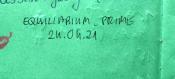 EQUILIBRIUM PRIME
24.04.21